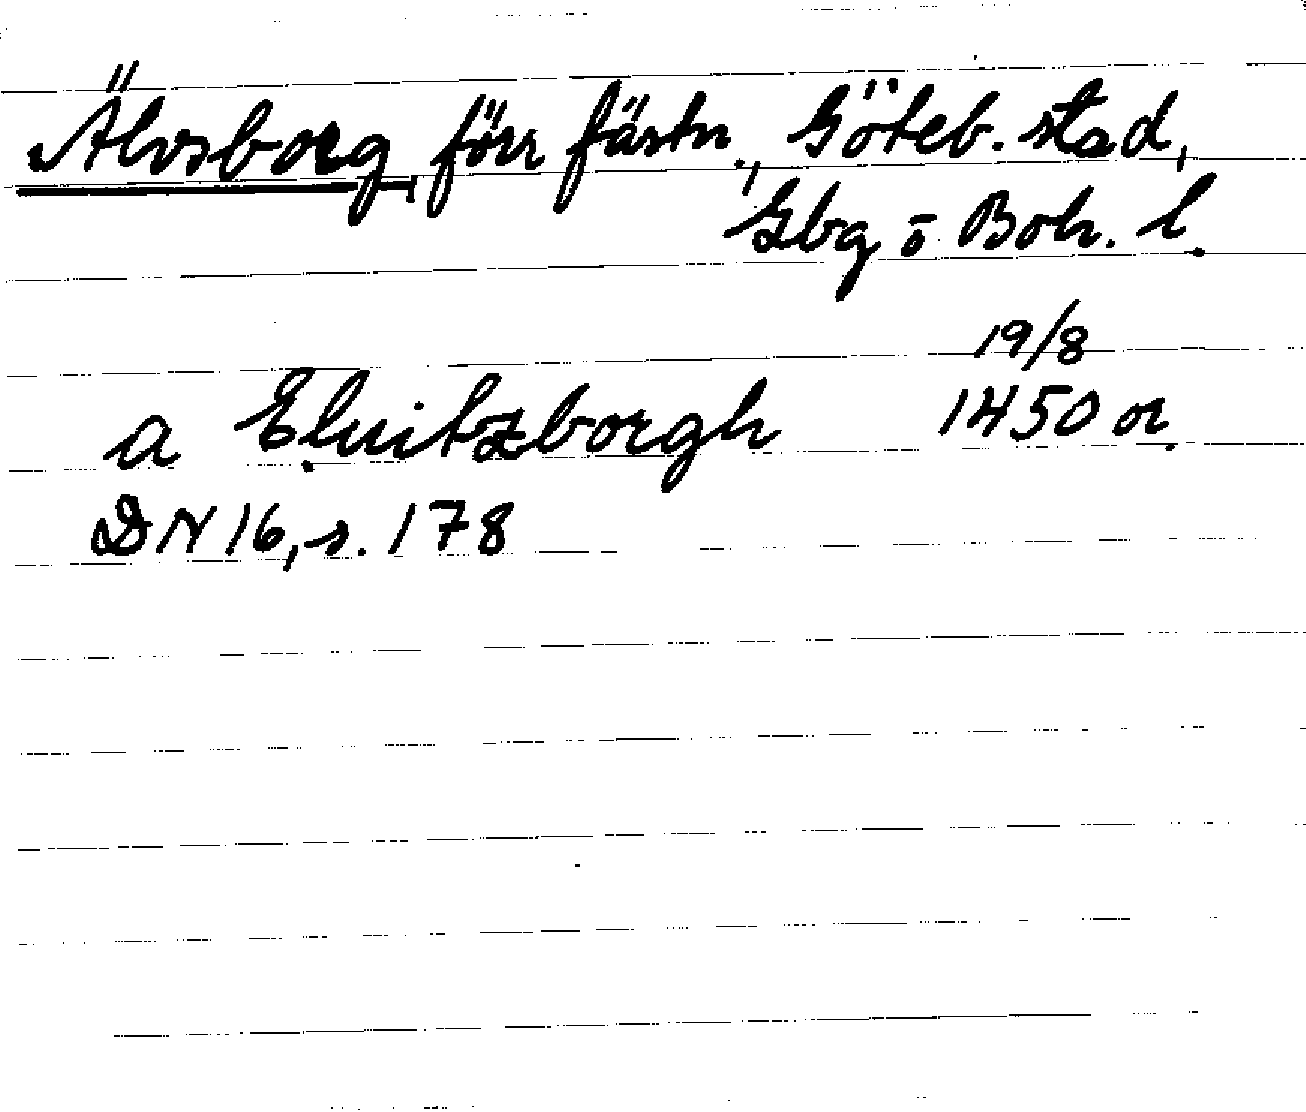 Älvsborg, förr fästn., Göteb. stad,
Gbg o Boh. l.
19/8
a Eluitzborgh 1450 or.
DN 16, s. 178